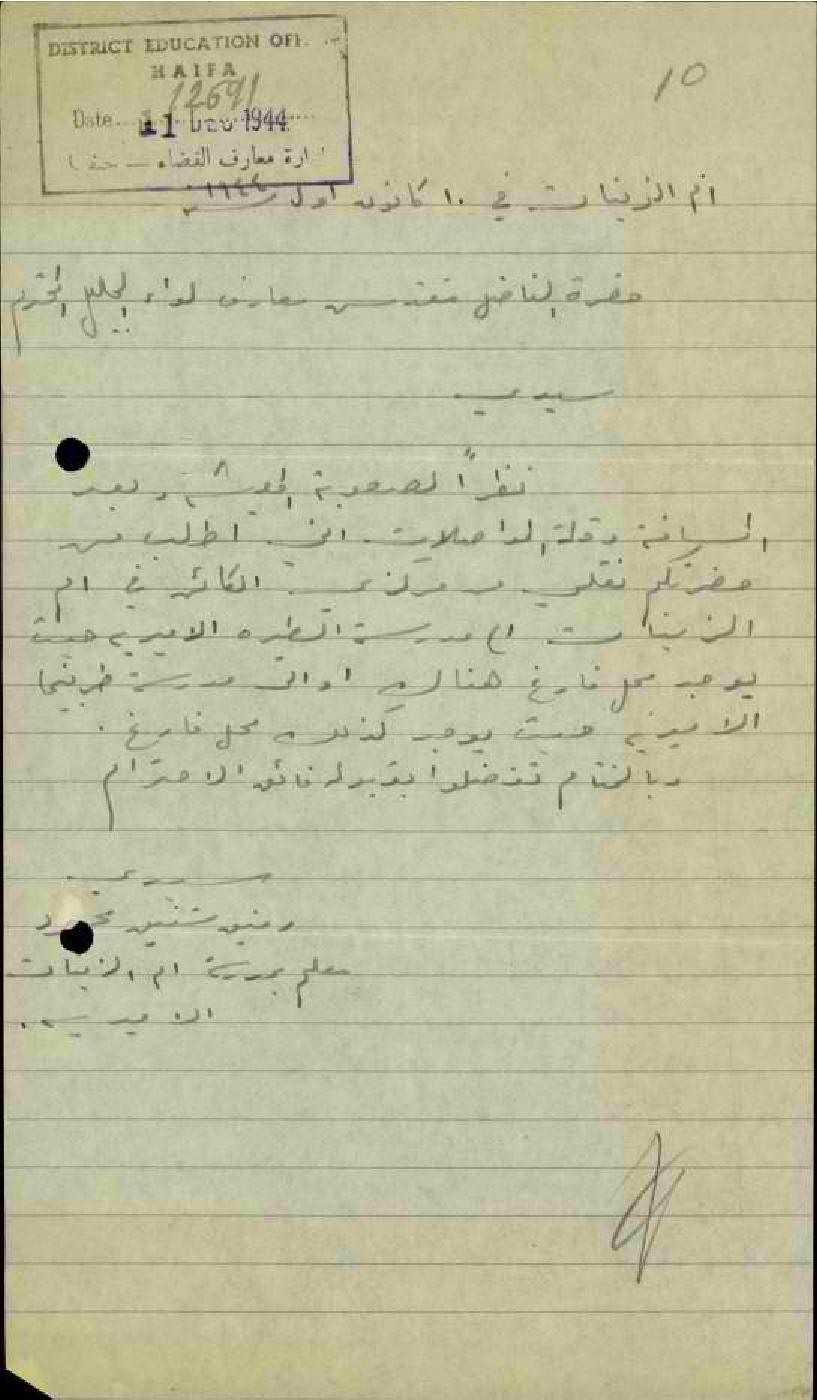 DISTRICT EDUCATION OFF.
HAIFA
12691
Date 11 DEC 1944
ادارة معارف القضاء - حيفا
10
ام الزينات في ١٠ كانون اول سنة ١٩٤٤
حضرة الفاضل مفتش معارف لواء الجليل المحترم
سيدي
نظراً لصعوبة المعيشة وبعد
المسافة وقلة المواصلات. اني اطلب من
حضرتكم نقلي من مركزي الكائن في ام
الزينات الى مدرسة الطيره الاميريه حيث
يوجد محل فارغ هناك او الى مدرسة
الاميريه حيث يوجد كذلك محل فارغ.
وبالختام تفضلوا بقبول فائق الاحترام
سيدي
شفيق
معلم بمدرسة ام الزينات
الاميريه.